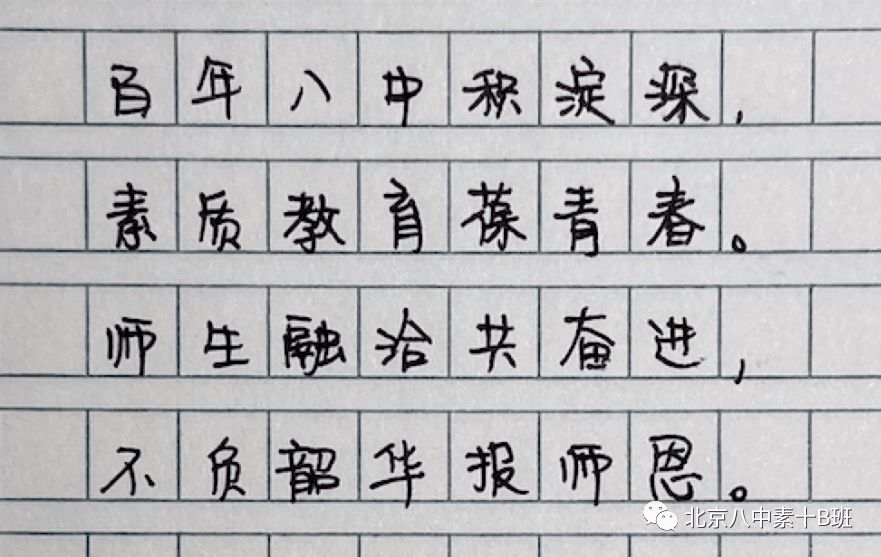 百年八中积淀深，
素质教育葆青春。
师生融洽共奋进，
不负韶华报师恩。
北京八中素十B班